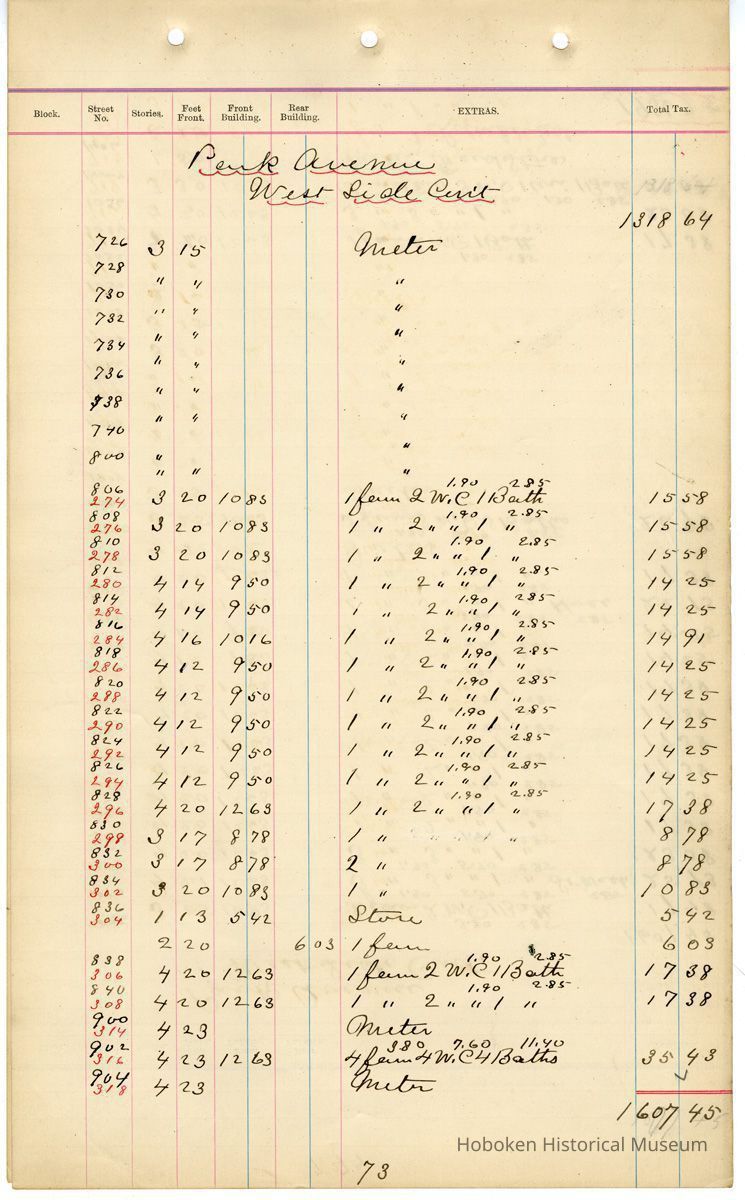 Block. Street No. Stories. Feet Front. Front Building. Rear Building. EXTRAS. Total Tax.
Park Avenue
West Side Cont
1318 64
726 3 15 Meter
728 " " "
730 " " "
732 " " "
734 " " "
736 " " "
738 " " "
740 " "
800 " " "
1.90 2.85
806 274 3 20 10 83 1 fam 2 W.C 1 Bath 15 58
1.90 2.85
808 276 3 20 10 83 1 " 2 " " 1 " 15 58
1.90 2.85
810 278 3 20 10 83 1 " 2 " " 1 " 15 58
1.90 2.85
812 280 4 14 9 50 1 " 2 " " 1 " 14 25
1.90 2.85
814 282 4 14 9 50 1 " 2 " " 1 " 14 25
1.90 2.85
816 284 4 16 10 16 1 " 2 " " 1 " 14 91
1.90 2.85
818 286 4 12 9 50 1 " 2 " " 1 " 14 25
1.90 2.85
820 288 4 12 9 50 1 " 2 " " 1 " 14 25
1.90 2.85
822 290 4 12 9 50 1 " 2 " " 1 " 14 25
1.90 2.85
824 292 4 12 9 50 1 " 2 " " 1 " 14 25
1.90 2.85
826 294 4 12 9 50 1 " 2 " " 1 " 14 25
1.90 2.85
828 296 4 20 12 63 1 " 2 " " 1 " 17 38
830 298 3 17 8 78 1 " 8 78
832 300 3 17 8 78 2 " 8 78
834 302 3 20 10 83 1 " 10 83
836 304 1 13 5 42 Store 5 42
2 20 6 03 1 fam 6 03
1.90 2.85
838 306 4 20 12 63 1 fam 2 W.C 1 Bath 17 38
1.90 2.85
840 308 4 20 12 63 1 " 2 " " 1 " 17 38
900 314 4 23 Meter
3 80 7.60 11.40
902 316 4 23 12 63 4 fam 4 W.C 4 Baths 35 43
904 318 4 23 Meter
1607 45
Hoboken Historical Museum
73